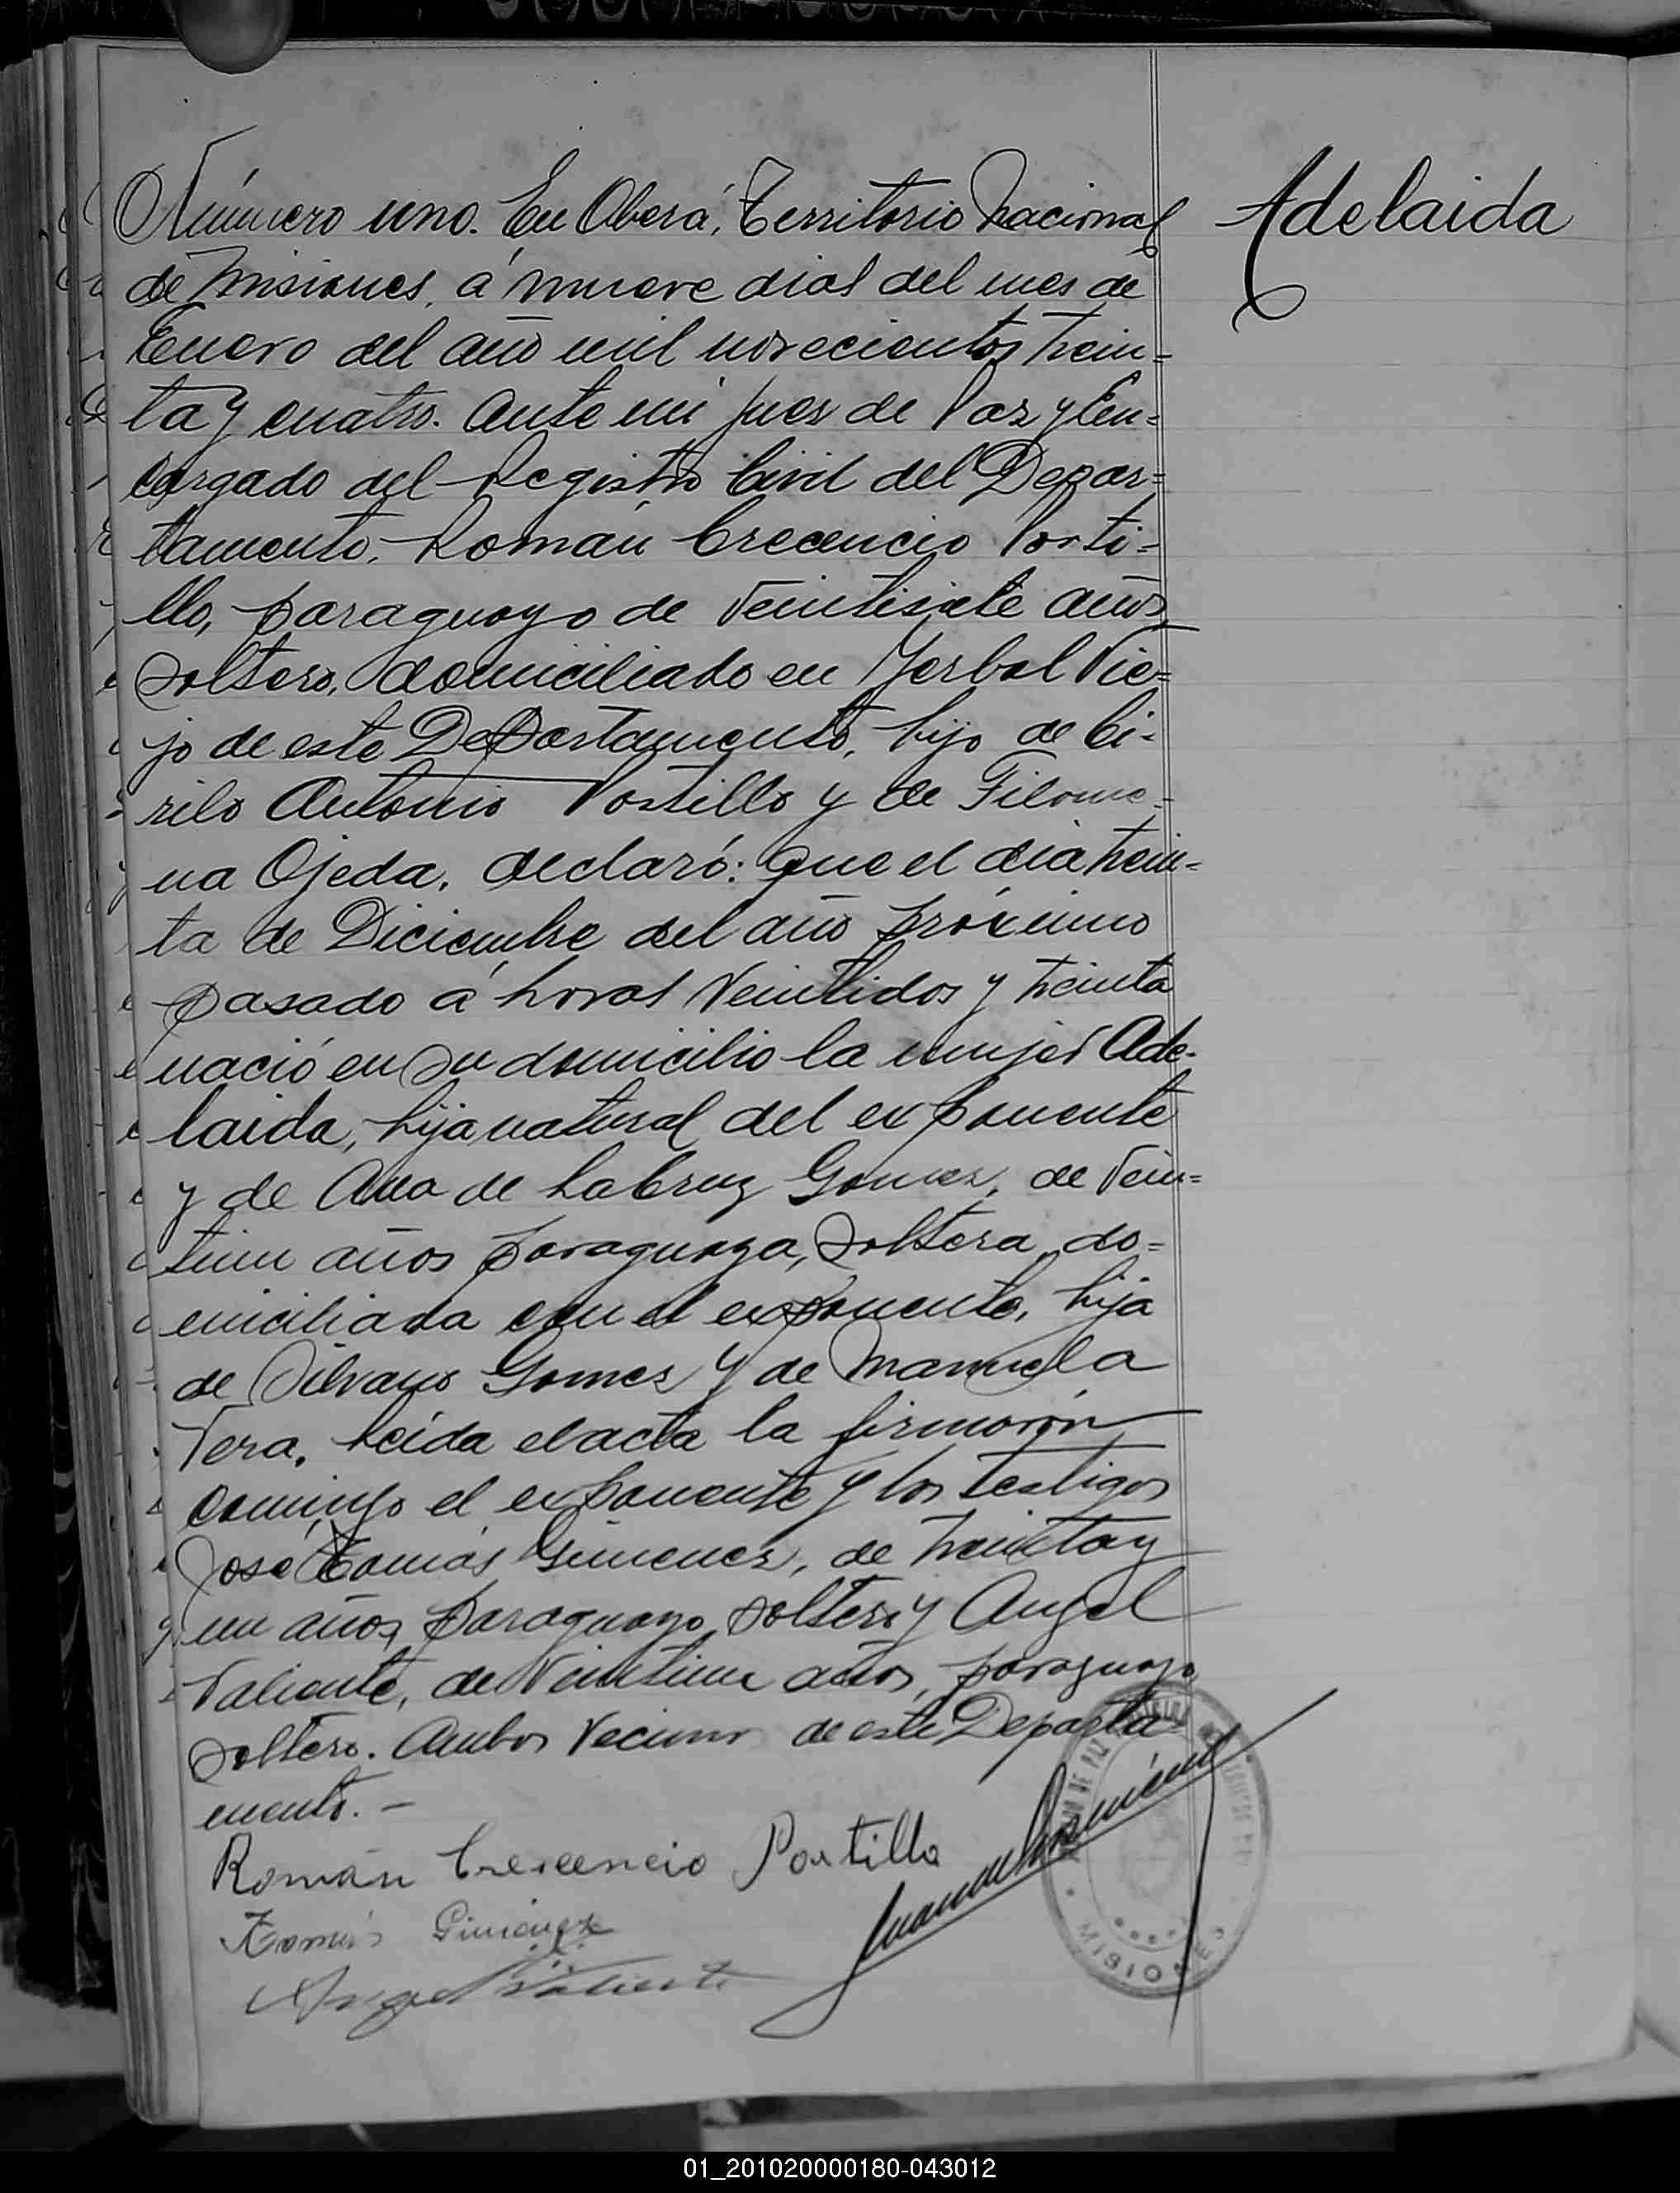 Número uno. En Oberá, Territorio Nacional
Adelaida
de Misiones, á nueve dias del mes de
Enero del año mil novecientos trein=
ta y cuatro. Ante mi Juez de Paz y En=
cargado del Registro Civil del Depar=
tamento, Román Crecencio Porti=
llo, paraguayo de veintisiete años,
soltero, domiciliado en Yerbal Vie=
jo de este Departamento, hijo de Ci=
rilo Antonio Portillo y de Filome=
na Ojeda, declaró: que el dia trein=
ta de Diciembre del año próximo
pasado á horas veintidos y treinta
nació en su domicilio la mujer Ade=
laida, hija natural del exponente
y de Ana de La Cruz Gomez, de vein=
tiun años paraguaya, soltera, do=
miciliada con el exponente, hija
de Silvano Gomez y de Manuela
Vera. Leida el acta la firmaron
conmigo el exponente y los testigos
José Tomás Gimenez, de treinta y
un años, paraguayo, soltero y Angel
Valiente, de veintiun años, paraguayo
soltero. Ambos vecinos de este Departa=
mento.-
Román Crecencio Portillo
Tomás Gimenez
Angel Valiente
MISIONES